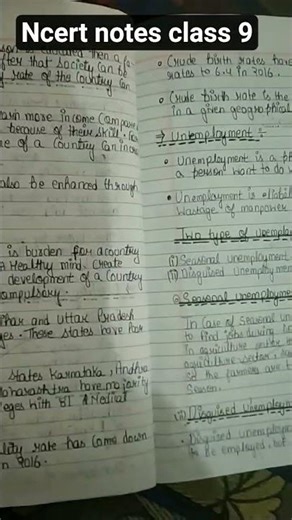 Ncert notes class 9
then a
ffer that society can be
rate of the country can
earn more income compare
because of their skill.
me of a country can incre
also be enhanced through
is burden for a country
Healthy mind. Create
development of a country
compulsory.
Bihar and Uttar Pradesh
ges. These states have poor
states Karnataka, Andhra
Maharashtra have majority
leges with BT & Medical
lity rate has come down
n 2016.
• Crude birth rates have
rates to 6.4 in 2016.
• Crude birth rate is the
in a given geographical
⇒ Unemployment :-
• Unemployment is a p
a person want to do w
• Unemployment is
wastage of manpower
Two type of unempl
(i) Seasonal unemployment
(ii) Disguised unemploymen
Seasonal unemployme
In case of seasonal un
to find jobs during
In agriculture
agriculture sector,
so the farmers are
season.
(ii) Disguised unemploym
• Disguised unemployme
to be employed, but